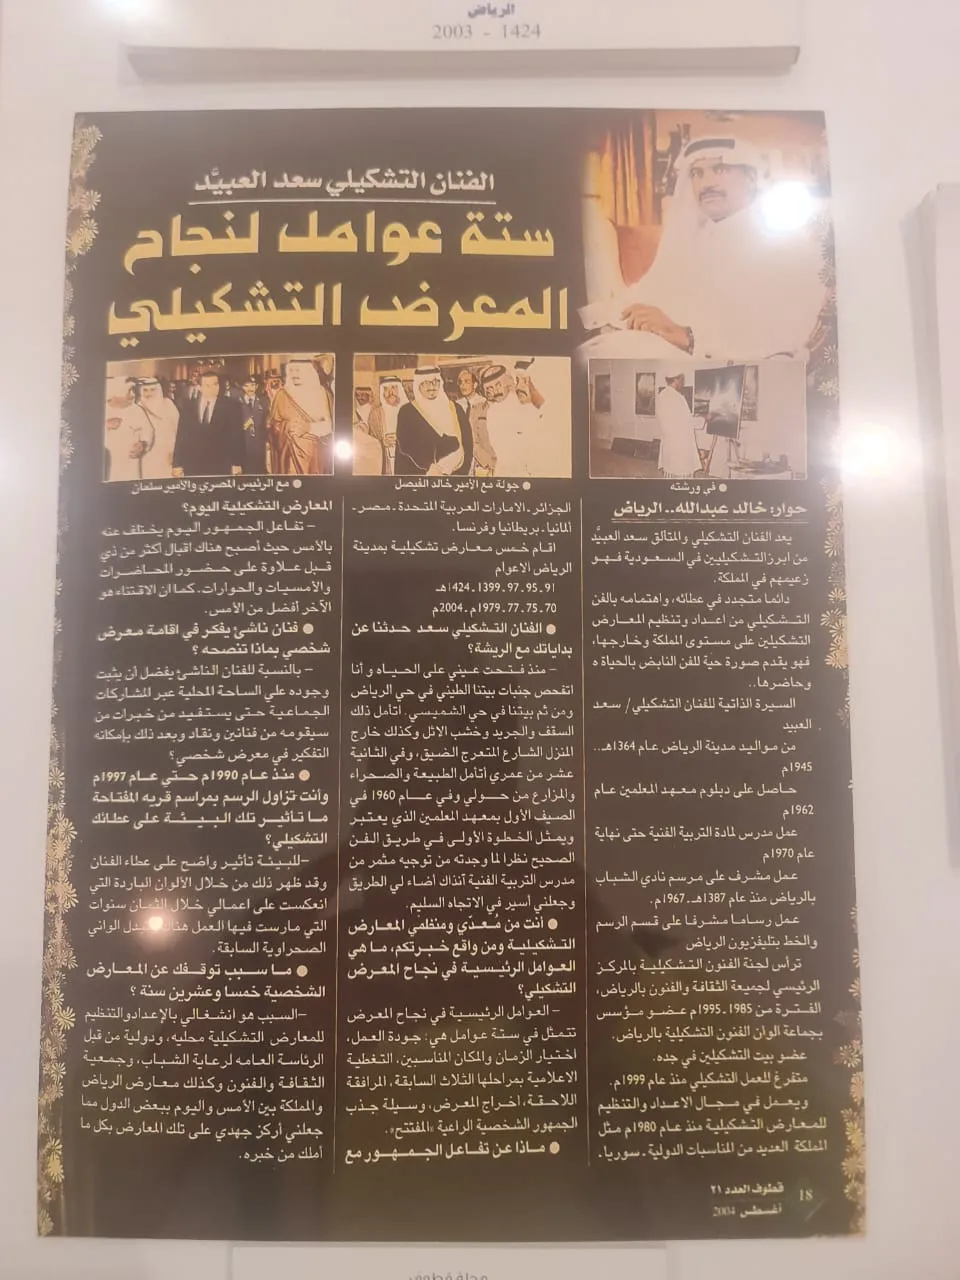 الرياض
1424 - 2003
الفنان التشكيلي سعد العبيَّد
ستة عوامل لنجاح
المعرض التشكيلي
● في ورشته
● جولة مع الأمير خالد الفيصل
● مع الرئيس المصري والأمير سلمان
حوار: خالد عبدالله.. الرياض
يعد الفنان التشكيلي والمتألق سعد العبيَّد
من ابرز التشكيليين في السعودية فهو
زعيمهم في المملكة.
دائما متجدد في عطائه، واهتمامه بالفن
التشكيلي من اعداد وتنظيم المعارض
التشكيلين على مستوى المملكة وخارجها،
فهو يقدم صورة حية للفن النابض بالحياة ه
وحاضرها..
السيرة الذاتية للفنان التشكيلي/ سعد
العبيد
من مواليد مدينة الرياض عام 1364هـ..
1945م
حاصل على دبلوم معهد المعلمين عام
1962م
عمل مدرس لمادة التربية الفنية حتى نهاية
عام 1970م
عمل مشرف على مرسم نادي الشباب
بالرياض منذ عام 1387هـ. 1967م.
عمل رساما مشرفا على قسم الرسم
والخط بتليفزيون الرياض
ترأس لجنة الفنون التشكيلية بالمركز
الرئيسي لجميعة الثقافة والفنون بالرياض،
الفترة من 1985 ـ 1995م عضو مؤسس
بجماعة الوان الفنون التشكيلية بالرياض.
عضو بيت التشكيلين في جده.
متفرغ للعمل التشكيلي منذ عام 1999م.
ويعمل في مجال الاعداد والتنظيم
للمعارض التشكيلية منذ عام 1980م مثل
المملكة العديد من المناسبات الدولية ـ سوريا ـ
الجزائر ـ الامارات العربية المتحدة ـ مصر ـ
ألمانيا ـ بريطانيا وفرنسا.
اقام خمس معارض تشكيلية بمدينة
الرياض الاعوام
91 ـ 95 ـ 97 ـ 1399 ـ 1424هـ
70 ـ 75 ـ 77 ـ 1979م ـ 2004م
● الفنان التشكيلي سعد حدثنا عن
بداياتك مع الريشة؟
– منذ فتحت عيني على الحياه و أنا
اتفحص جنبات بيتنا الطيني في حي الرياض
ومن ثم بيتنا في حي الشميسي. أتامل ذلك
السقف والجريد وخشب الاثل وكذلك خارج
المنزل الشارع المتعرج الضيق، وفي الثانية
عشر من عمري أتامل الطبيعة والصحراء
والمزارع من حولي وفي عام 1960 في
الصيف الأول بمعهد المعلمين الذي يعتبر
ويمثل الخطوة الأولى في طريق الفن
الصحيح نظرا لما وجدته من توجيه مثمر من
مدرس التربية الفنية آنذاك أضاء لي الطريق
وجعلني أسير في الاتجاه السليم.
● أنت من مُعدّي ومنظمي المعارض
التشكيلية ومن واقع خبرتكم، ما هي
العوامل الرئيسية في نجاح المعرض
التشكيلي؟
– العوامل الرئيسية في نجاح المعرض
تتمثل في ستة عوامل هي: جودة العمل،
اختيار الزمان والمكان المناسبين، التغطية
الاعلامية بمراحلها الثلاث السابقة، المرافقة
اللاحقة، اخراج المعرض، وسيلة جذب
الجمهور الشخصية الراعية «المفتتح».
● ماذا عن تفاعل الجمهور مع
المعارض التشكيلية اليوم؟
– تفاعل الجمهور اليوم يختلف عنه
بالامس حيث أصبح هناك اقبال أكثر من ذي
قبل علاوة على حضور المحاضرات
والأمسيات والحوارات. كما ان الاقتناء هو
الآخر أفضل من الأمس.
● فنان ناشئ يفكر في اقامة معرض
شخصي بماذا تنصحه ؟
– بالنسبة للفنان الناشئ يفضل أن يثبت
وجوده علي الساحة المحلية عبر المشاركات
الجماعية حتى يستفيد من خبرات من
سيقومه من فنانين ونقاد وبعد ذلك بإمكانه
التفكير في معرض شخصي؟
● منذ عام 1990م حتي عام 1997م
وأنت تزاول الرسم بمراسم قريه المفتاحة
ما تأثير تلك البيئة على عطائك
التشكيلي؟
–للبيئة تأثير واضح على عطاء الفنان
وقد ظهر ذلك من خلال الألوان الباردة التي
انعكست على اعمالي خلال الثمان سنوات
التي مارست فيها العمل الواني
الصحراوية السابقة.
● ما سبب توقفك عن المعارض
الشخصية خمسا وعشرين سنة ؟
–السبب هو انشغالي بالإعداد والتنظيم
للمعارض التشكيلية محليه، ودولية من قبل
الرئاسة العامه لرعاية الشباب، وجمعية
الثقافة والفنون وكذلك معارض الرياض
والمملكة بين الأمس واليوم ببعض الدول مما
جعلني أركز جهدي على تلك المعارض بكل ما
أملك من خبره.
قطوف العدد ٢١
أغسطس 2004
18